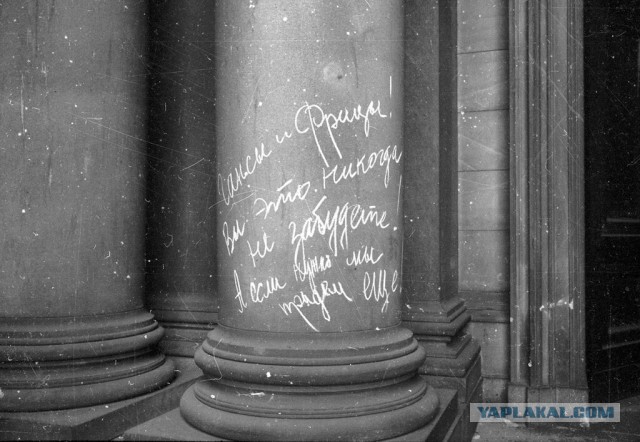 Гансы и Фрицы!
Вы это никогда
не забудете!
А если нужно мы
придем еще
YAPLAKAL.COM